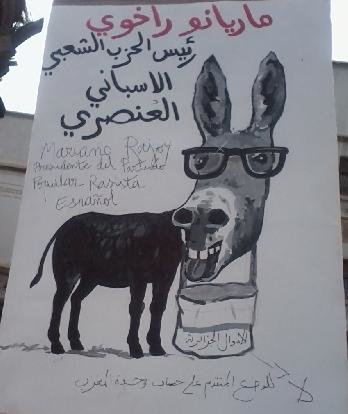 ماريانو راخوي
رئيس الحزب الشعبي
الاسباني
العنصري
Mariano Rajoy
Presidente del Partido
Popular Rasista
Español
الاموال الجزائرية
لا للدعم المقدم على حساب وحدة المغرب